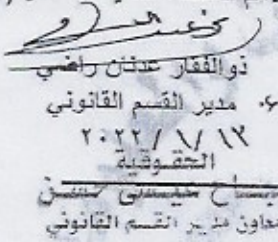 ذوالفقار عدنان راضي
مدير القسم القانوني
٢٠٢٢/١/١٣
الحقوقية
معاون مدير القسم القانوني